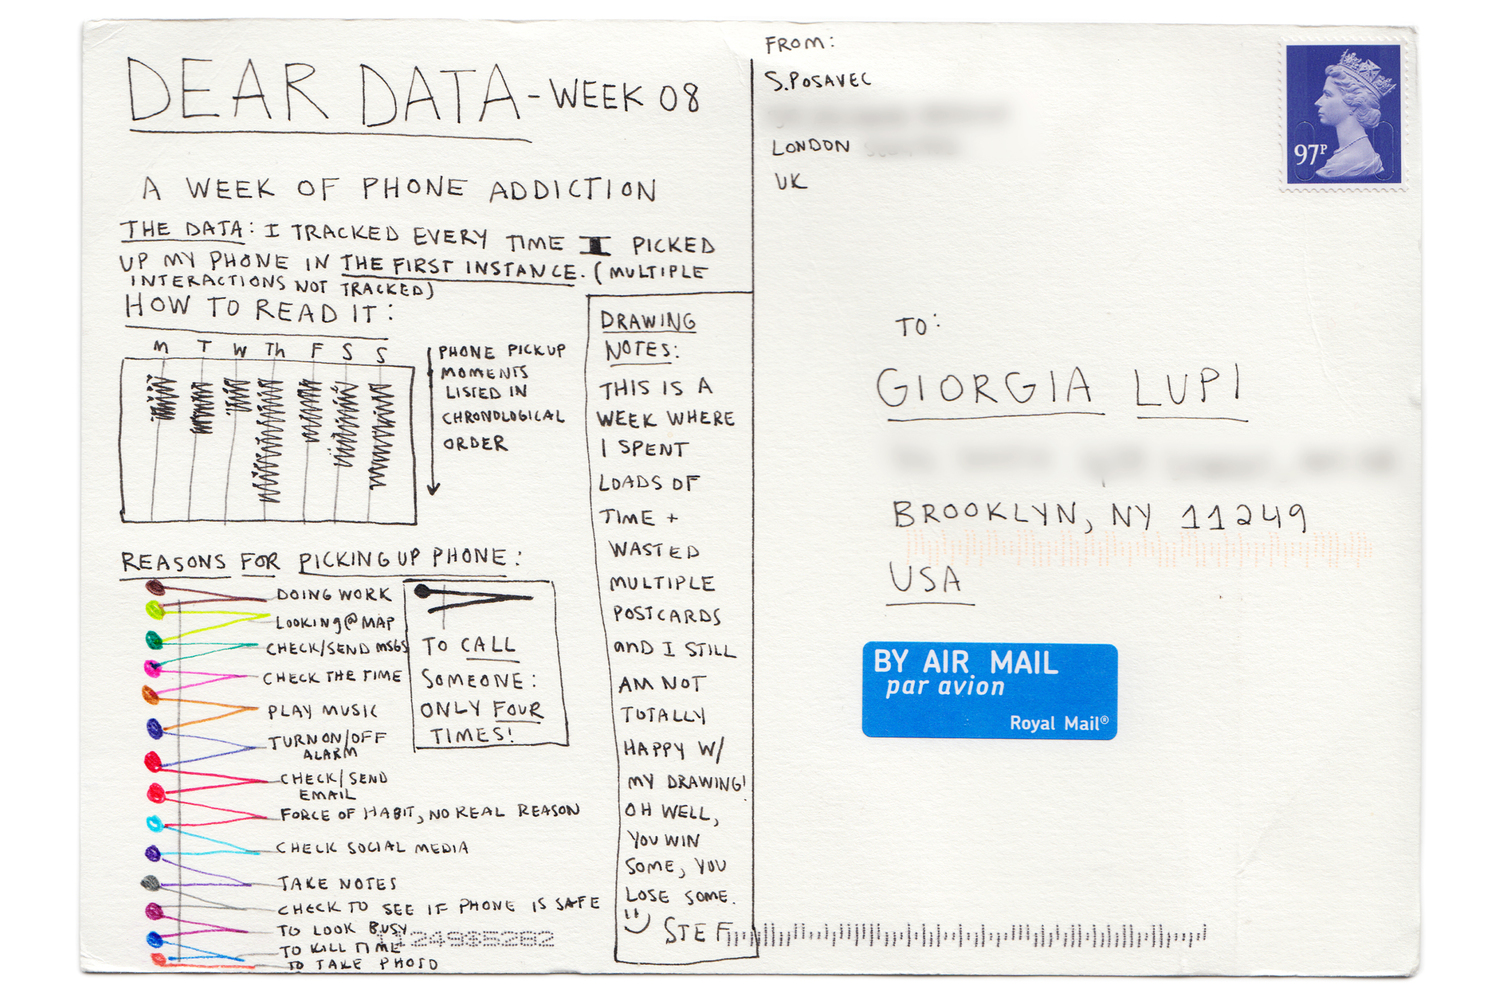 DEAR DATA - WEEK 08
A WEEK OF PHONE ADDICTION
THE DATA: I TRACKED EVERY TIME I PICKED
UP MY PHONE IN THE FIRST INSTANCE. (MULTIPLE
INTERACTIONS NOT TRACKED)
HOW TO READ IT:
M T W Th F S S
PHONE PICKUP
MOMENTS
LISTED IN
CHRONOLOGICAL
ORDER
REASONS FOR PICKING UP PHONE:
DOING WORK
LOOKING@MAP
CHECK/SEND MSGS
CHECK THE TIME
PLAY MUSIC
TURN ON/OFF
ALARM
CHECK/SEND
EMAIL
FORCE OF HABIT, NO REAL REASON
CHECK SOCIAL MEDIA
TAKE NOTES
CHECK TO SEE IF PHONE IS SAFE
TO LOOK BUSY
TO KILL TIME
TO TAKE PHOTO
TO CALL
SOMEONE:
ONLY FOUR
TIMES!
DRAWING
NOTES:
THIS IS A
WEEK WHERE
I SPENT
LOADS OF
TIME +
WASTED
MULTIPLE
POSTCARDS
and I STILL
AM NOT
TOTALLY
HAPPY W/
MY DRAWING!
OH WELL,
YOU WIN
SOME, YOU
LOSE SOME.
STEF
FROM:
S.POSAVEC
LONDON
UK
97P
TO:
GIORGIA LUPI
BROOKLYN, NY 11249
USA
BY AIR MAIL
par avion
Royal Mail®